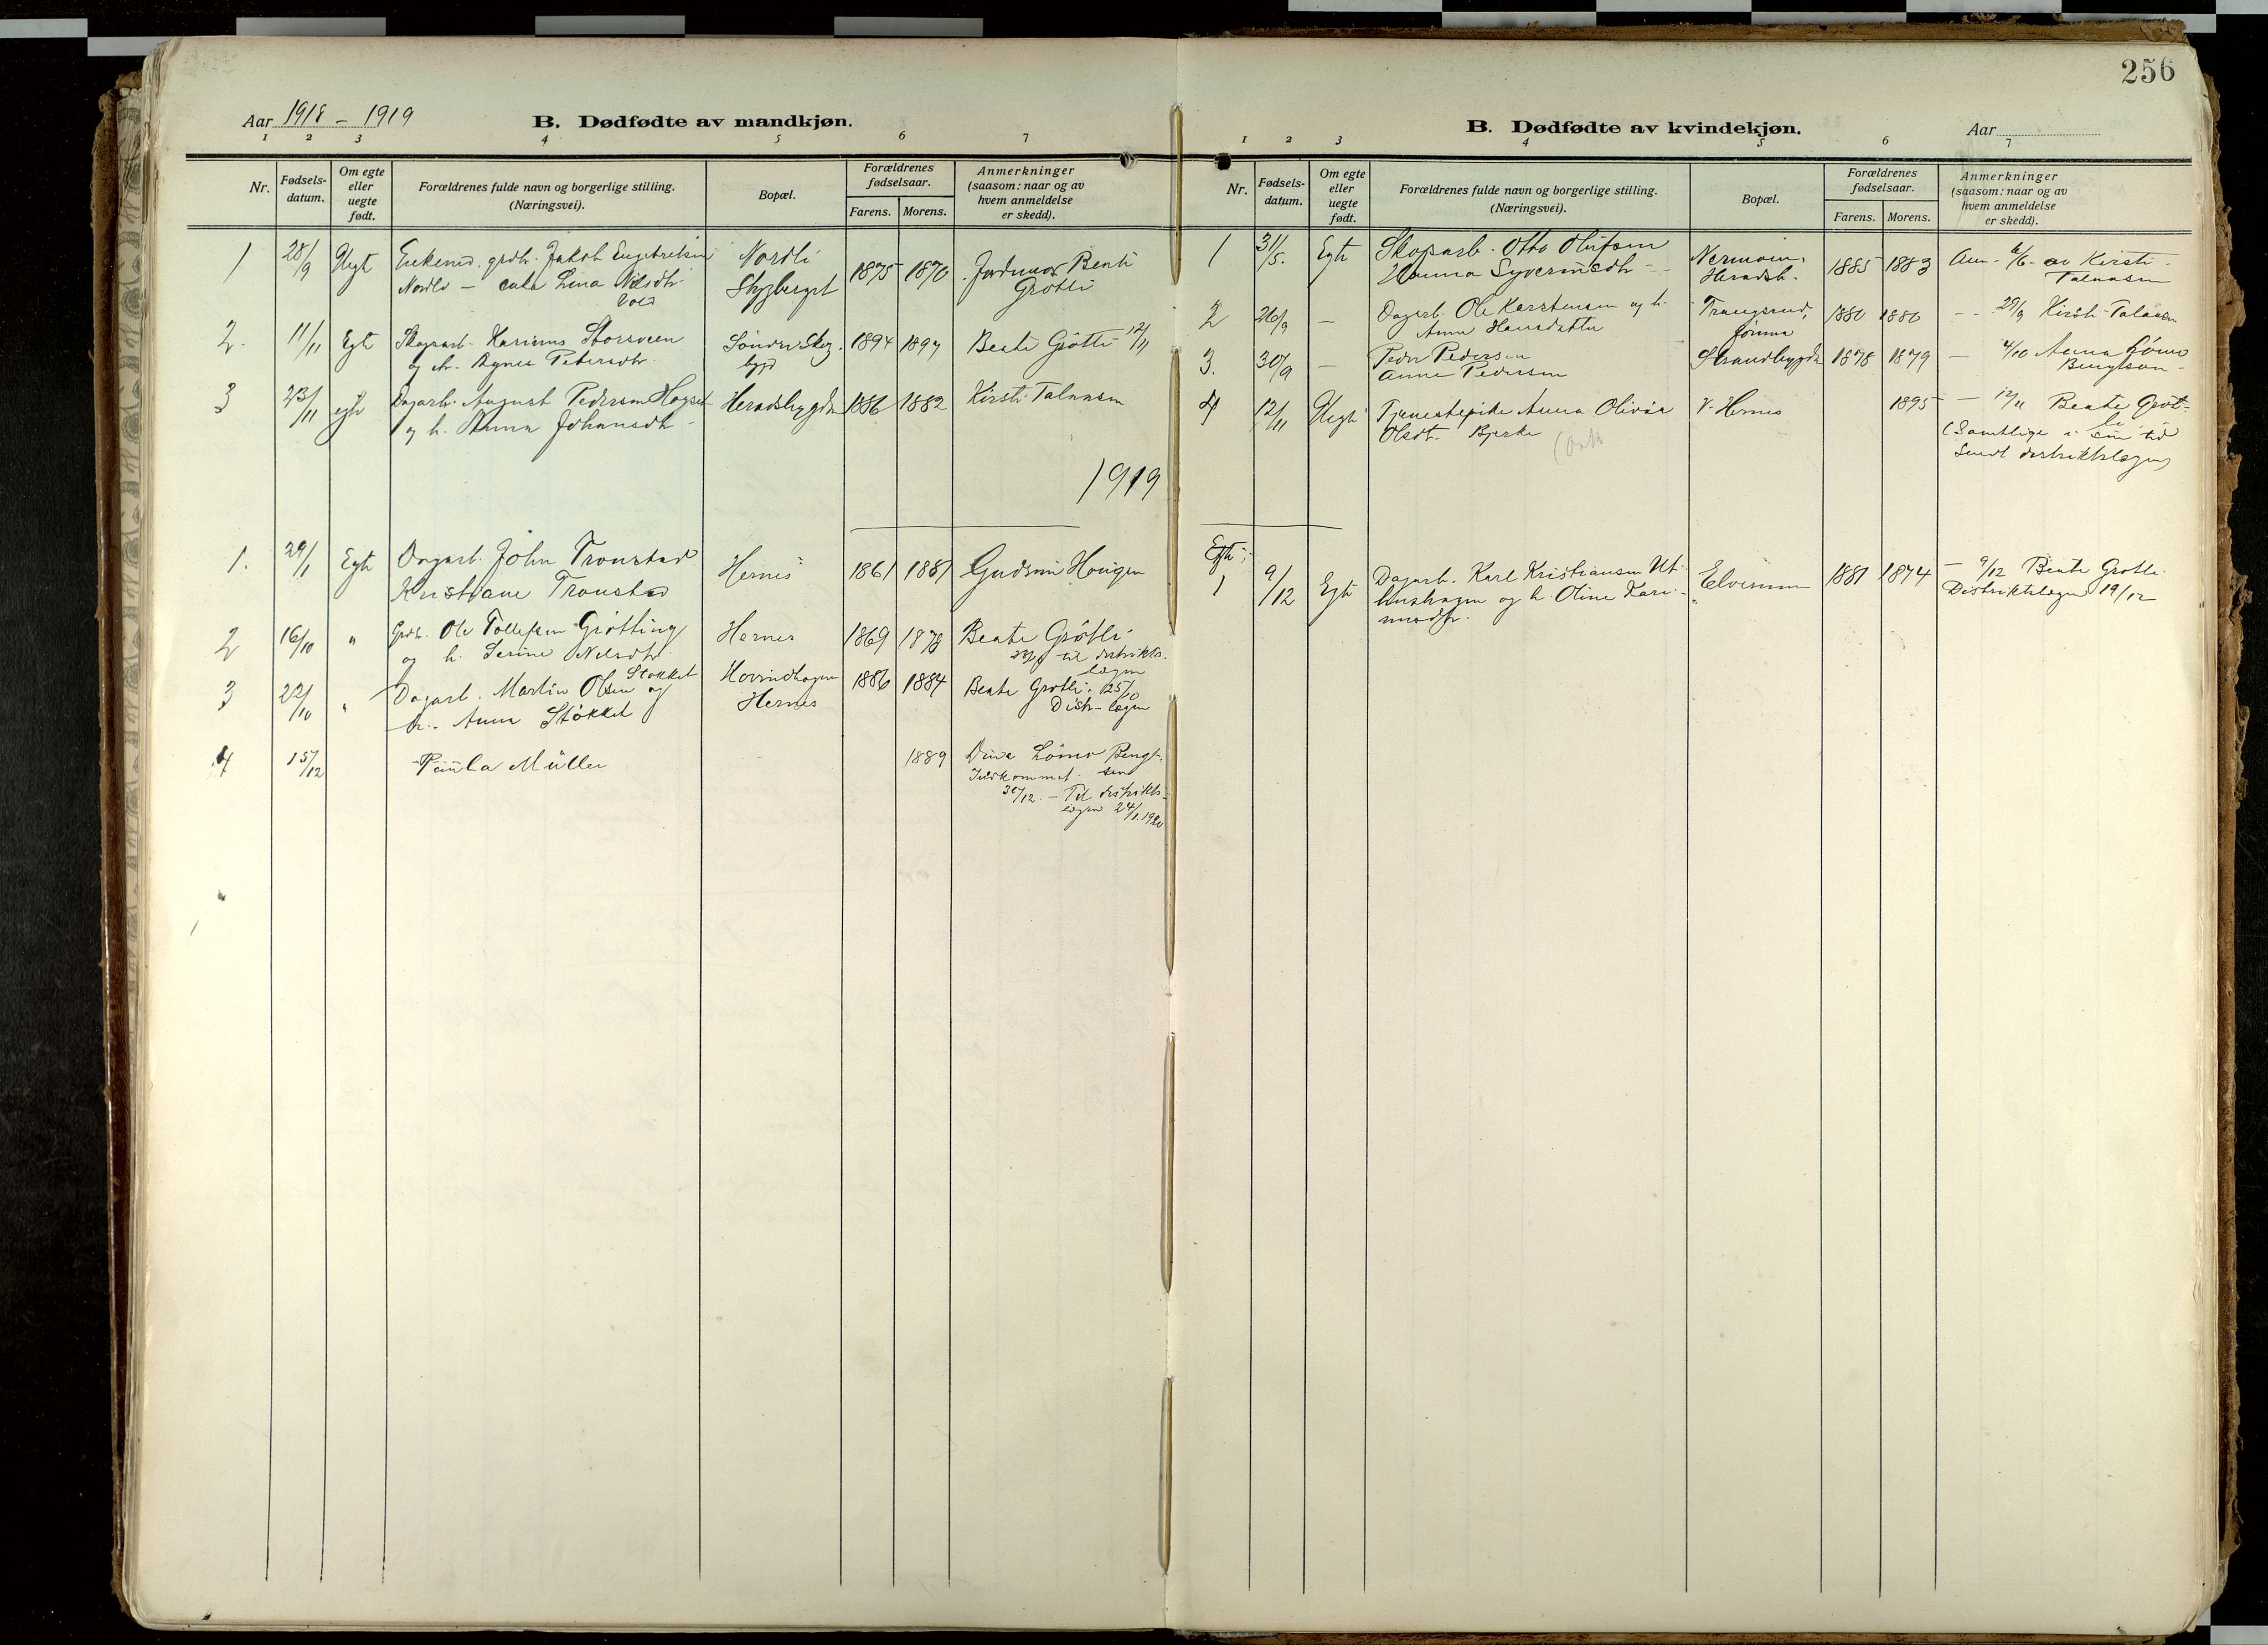 256
Aar 1918 - 1919
B. Dødfødte av mandkjøn.
1 2 3 4 5 6 7
Nr.
Fødsels-
datum.
Om egte
eller
uegte
født.
Forældrenes fulde navn og borgerlige stilling.
(Næringsvei).
Bopæl.
Forældrenes
fødselsaar.
Farens. Morens.
Anmerkninger
(saasom: naar og av
hvem anmeldelse
er skedd).
1 28/9 Uegt Enkemd. grdbr. Jakob Engebretsen Nordli 1875 1870 Jordmor Beate
Nordli — Lina Nilsdtr. Skybergst Grøtli
Vold
2. 11/11 Egte Skogsarb. Karinus Storsveen Sønder Skog- 1894 1897 Beate Grøtli 12/11
og h. Agnes Petersdtr. bygd
3 23/11 egte Dagarb. August Pedersen Hagset Heradsbygden 1886 1882 Kirsti Talaasen
og h. Anna Johansdtr.
1919
1. 29/1 Egte Dagarb. John Tronstad Hernes 1861 1881 Gudrun Hougen
Kristiane Tronstad
2 16/10 " Grdbr. Ole Tollefsen Grøtting Hernes 1869 1878 Beate Grøtli
og h. Serine Nilsdtr. til distrikts-
lægen
3 22/10 " Dagarb. Martin Olsen Støkket og Hovindhagen 1886 1884 Beate Grøtli 25/10
h. Anna Støkket Hernes Distr-lægen
4 15/12 Paula Müller 1889 Lømo Bengt-
Indkommet sen
30/12. — Til distrikts-
lægen 24/1.1920
B. Dødfødte av kvindekjøn.
Aar
1 2 3 4 5 6 7
Nr.
Fødsels-
datum.
Om egte
eller
uegte
født.
Forældrenes fulde navn og borgerlige stilling.
(Næringsvei).
Bopæl.
Forældrenes
fødselsaar.
Farens. Morens.
Anmerkninger
(saasom: naar og av
hvem anmeldelse
er skedd).
1 31/5. Egte Skogsarb. Otto Olufsen Nermoen, 1885 1883 Anm. 6/6 av Kirsti
Hanna Syverinsdtr. Heradsb. Talaasen
2 26/9 — Dagarb. Ole Karstensen og h. Trangsrud, 1880 1880 — 29/9 Kirsti Talaasen
Anna Hansdatter Jømna
3. 30/9 — Peder Pedersen Strandbygden 1878 1879 — 4/10 Anna Lømo
Anne Pedersen Bengtson
4 12/11 Uegte Tjenestepike Anna Olivia V. Hernes 1895 — 12/11 Beate Grøt-
Olsdt. Bjerke li
(Samtlige i sin tid
sendt distriktslægen)
Egte
1 9/12 Egte Dagarb. Karl Kristiansen Ut- Elverum 1881 1874 — 9/12 Beate Grøtli
hushagen og h. Oline Kari- Distriktslægen 19/12
nusdtr.